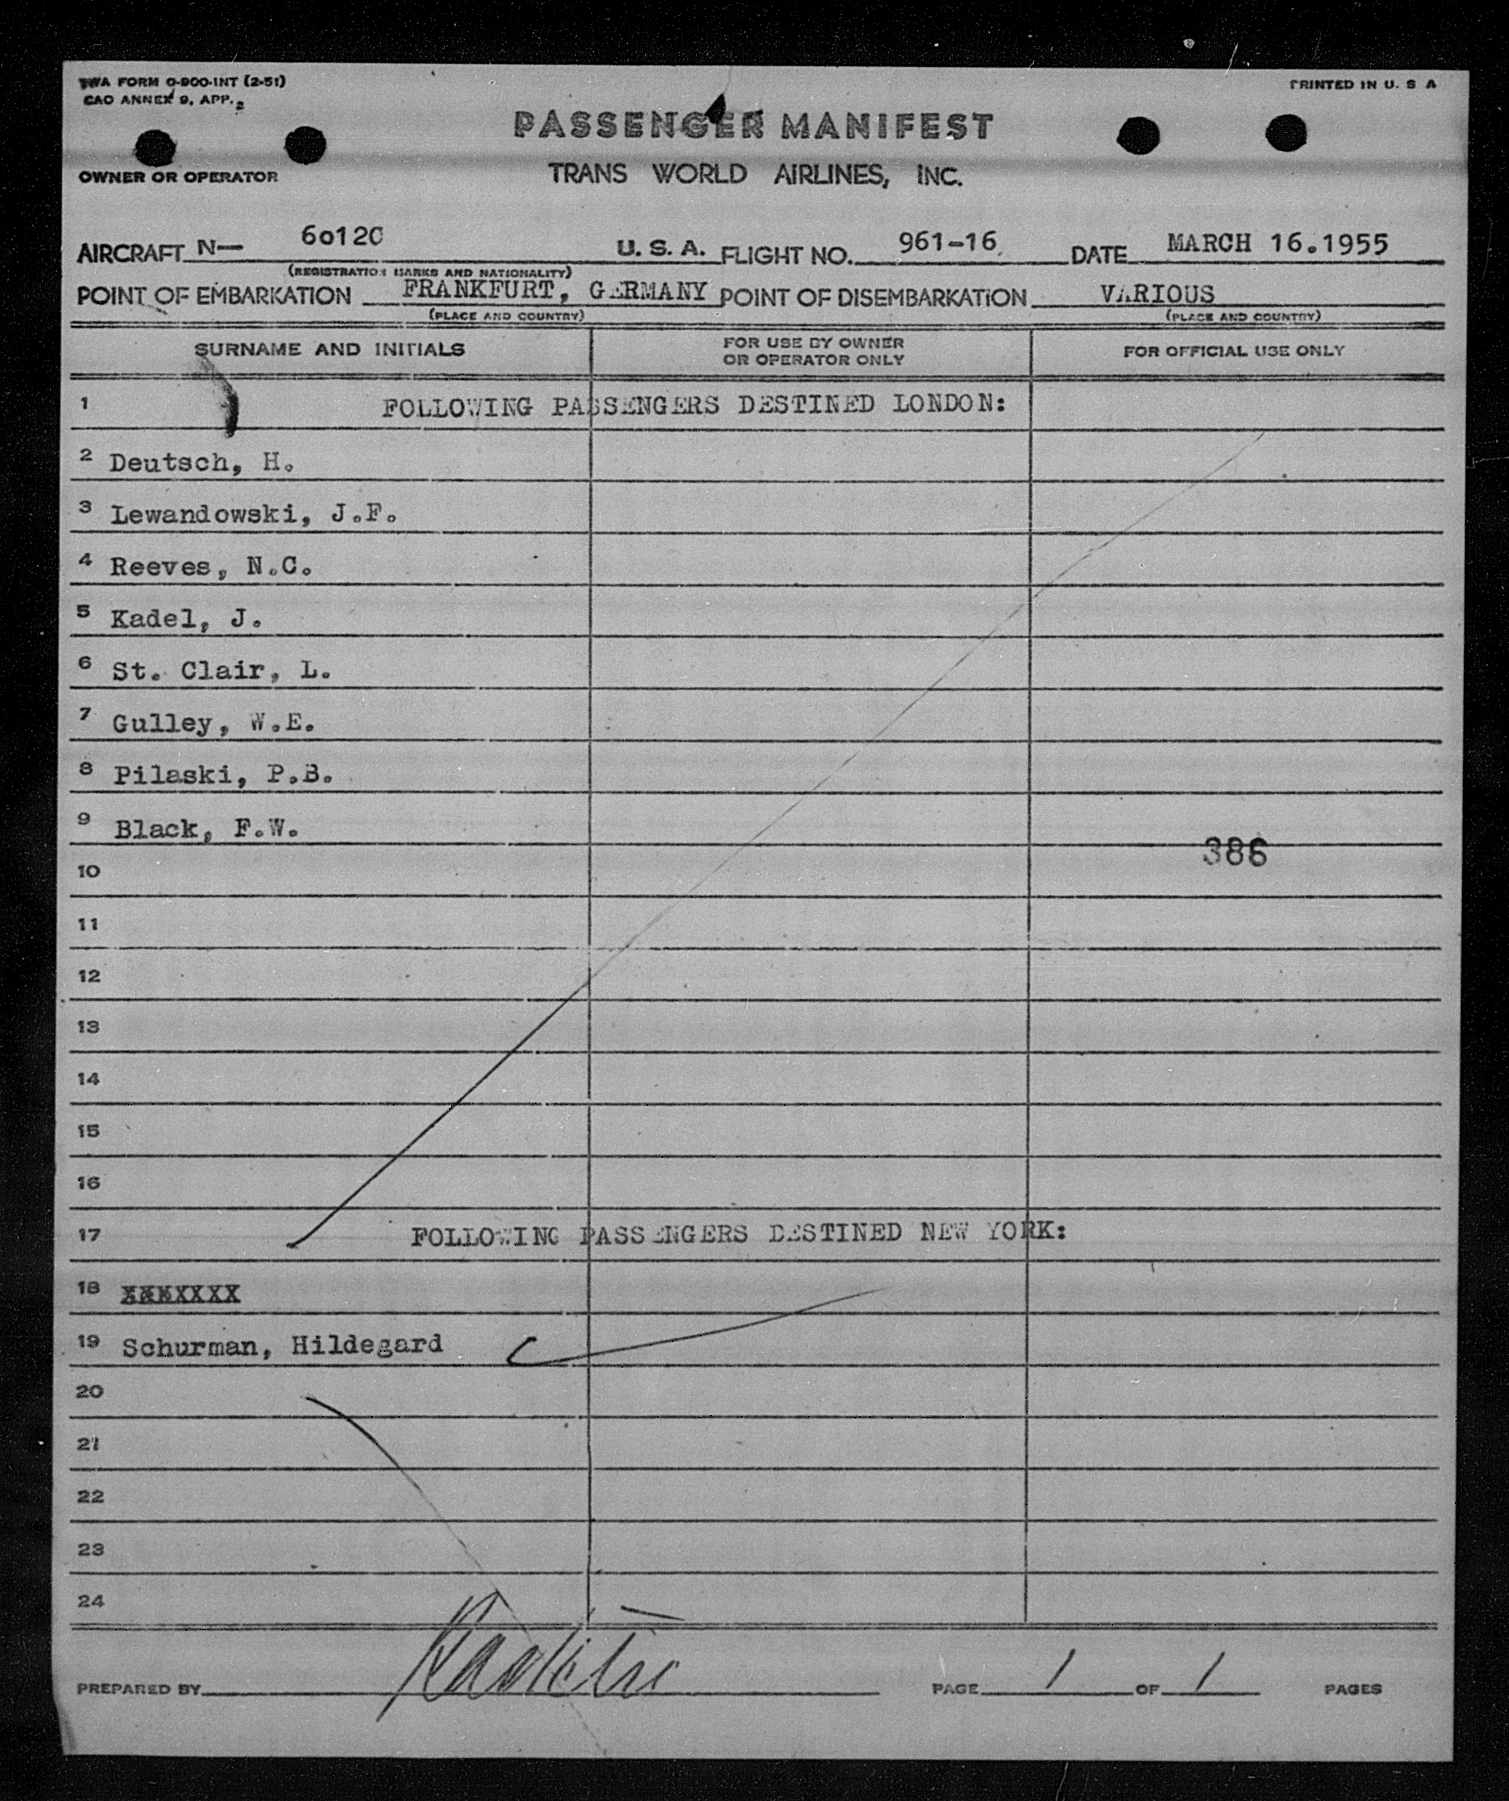 TWA FORM O-900-INT (2-51)
PRINTED IN U. S A
CAO ANNEX 9, APP. 2
PASSENGER MANIFEST
OWNER OR OPERATOR
TRANS WORLD AIRLINES, INC.
AIRCRAFT N— 6012C U. S. A. FLIGHT NO. 961-16. DATE MARCH 16.1955
(REGISTRATION MARKS AND NATIONALITY)
POINT OF EMBARKATION FRANKFURT, GERMANY POINT OF DISEMBARKATION VARIOUS
(PLACE AND COUNTRY) (PLACE AND COUNTRY)
SURNAME AND INITIALS FOR USE BY OWNER OR OPERATOR ONLY FOR OFFICIAL USE ONLY
1 FOLLOWING PASSENGERS DESTINED LONDON:
2 Deutsch, H.
3 Lewandowski, J.F.
4 Reeves, N.C.
5 Kadel, J.
6 St. Clair, L.
7 Gulley, W.E.
8 Pilaski, P.B.
9 Black, F.W.
386
10
11
12
13
14
15
16
17 FOLLOWING PASSENGERS DESTINED NEW YORK:
18 XXXXXXX
19 Schurman, Hildegard
20
21
22
23
24
PREPARED BY PAGE 1 OF 1 PAGES